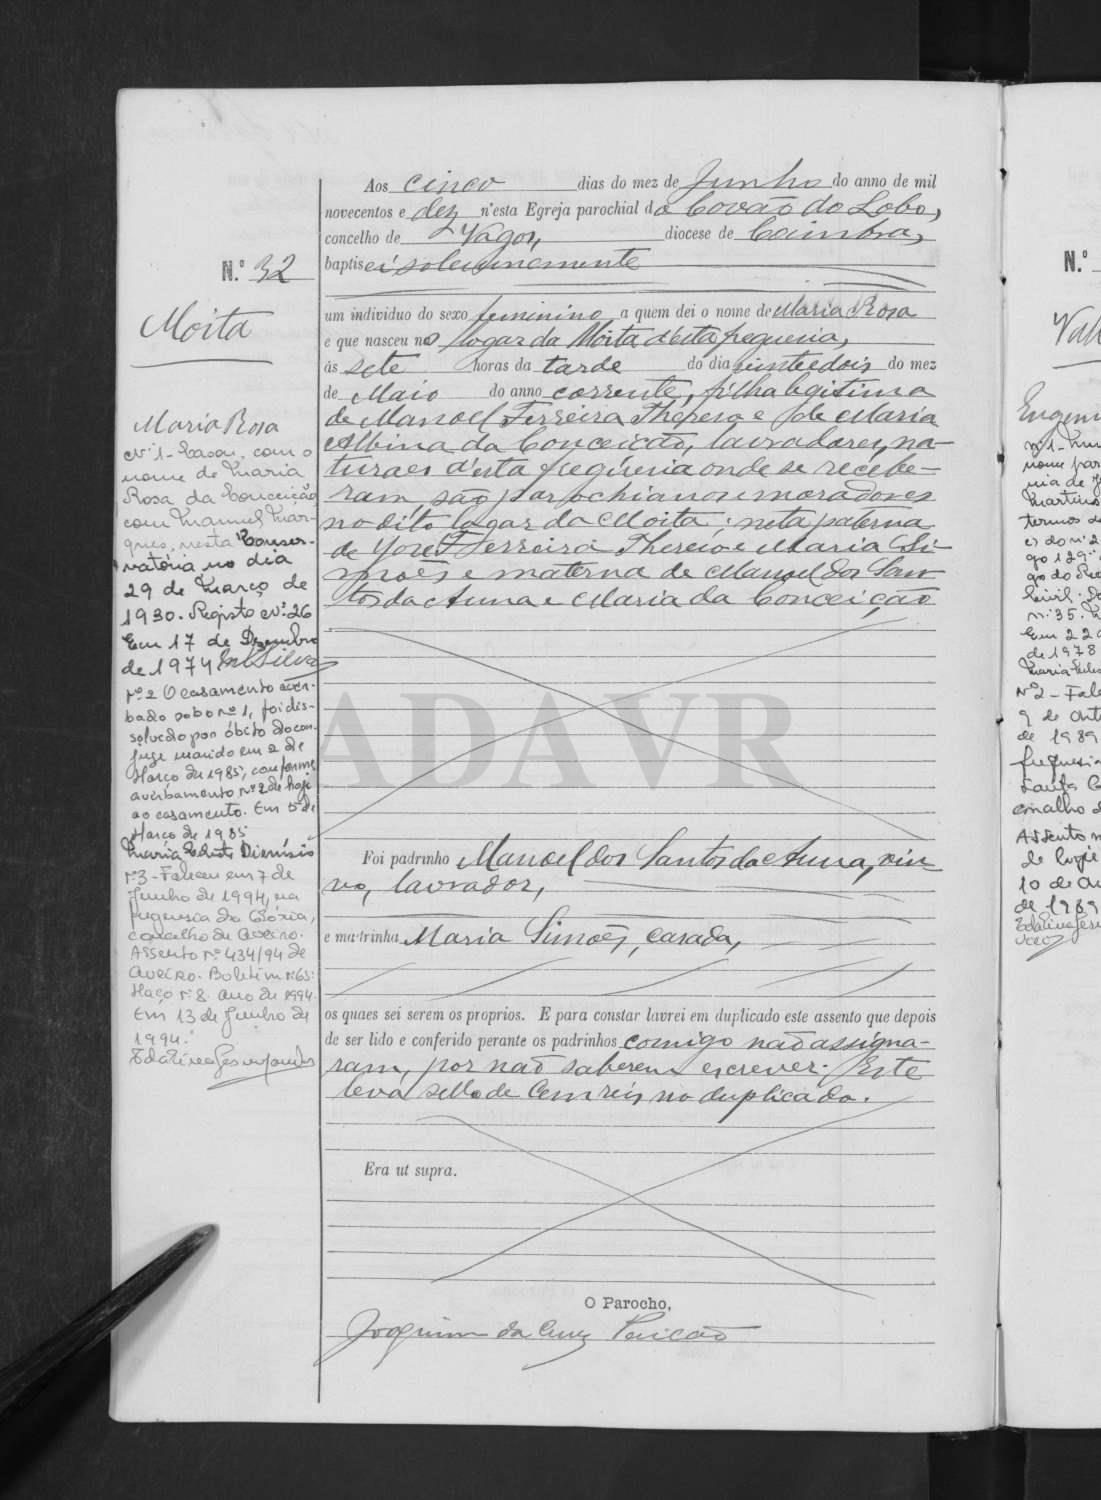 Aos cinco dias do mez de Junho do anno de mil
novecentos e dez n'esta Egreja parochial do Covão do Lobo,
concelho de Vagos, diocese de Coimbra,
baptisei solemnemente
N.º 32
Moita
um individuo do sexo feminino a quem dei o nome de Maria Rosa
e que nasceu no logar da Moita d'esta freguesia,
ás sete horas da tarde do dia vinte e dois do mez
de Maio do anno corrente, filha legitima
de Manoel Ferreira Thereso e de Maria
Albina da Conceição, lavradores, na-
turaes d'esta freguesia onde se recebe-
ram, são parochianos e moradores
no dito logar da Moita; neta paterna
de José Ferreira Thereso e Maria Si-
mões e materna de Manuel dos San-
tos da Anna e Maria da Conceição
Foi padrinho Manoel dos Santos da Anna, viu-
vo, lavrador,
e madrinha Maria Simões, casada,
os quaes sei serem os proprios. E para constar lavrei em duplicado este assento que depois
de ser lido e conferido perante os padrinhos comigo não assigna-
ram, por não saberem escrever. Este
leva sello de cem réis no duplicado.
Era ut supra.
O Parocho,
Joaquim da Cruz
Maria Rosa
Nº 1 - Casou, com o
nome de Maria
Rosa da Conceição
com Manuel Mar-
ques, nesta Conser-
vatória no dia
29 de Março de
1930. Registo Nº 26
Em 17 de Dezembro
de 1974 Silva
Nº 2 O casamento aver-
bado sob o nº 1, foi dis-
solvido por óbito do con-
juge marido em 2 de
Março de 1985, conforme
averbamento nº 2 de hoje
ao casamento. Em 5 de
Março de 1985
Maria Dionísio
Nº 3 - Faleceu em 7 de
Junho de 1994, na
freguesia da Glória,
concelho de Aveiro.
Assento nº 434/94 de
Aveiro. Boletim nº 63:
Maço nº 8. ano de 1994.
Em 13 de Junho de
1994.
N.º
Eugeni
Nº 2 - Fale
9 de Out
de 1989
freguesia
Santa C
concelho d
Assento n
de hoje
10 de Ou
de 1989
ADAVR